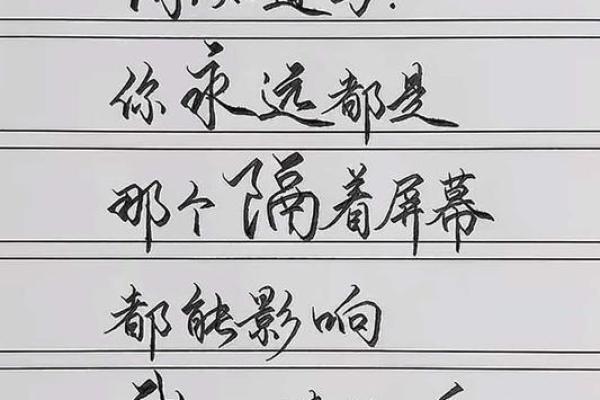 你永远都是
那个隔着屏幕
都能影响